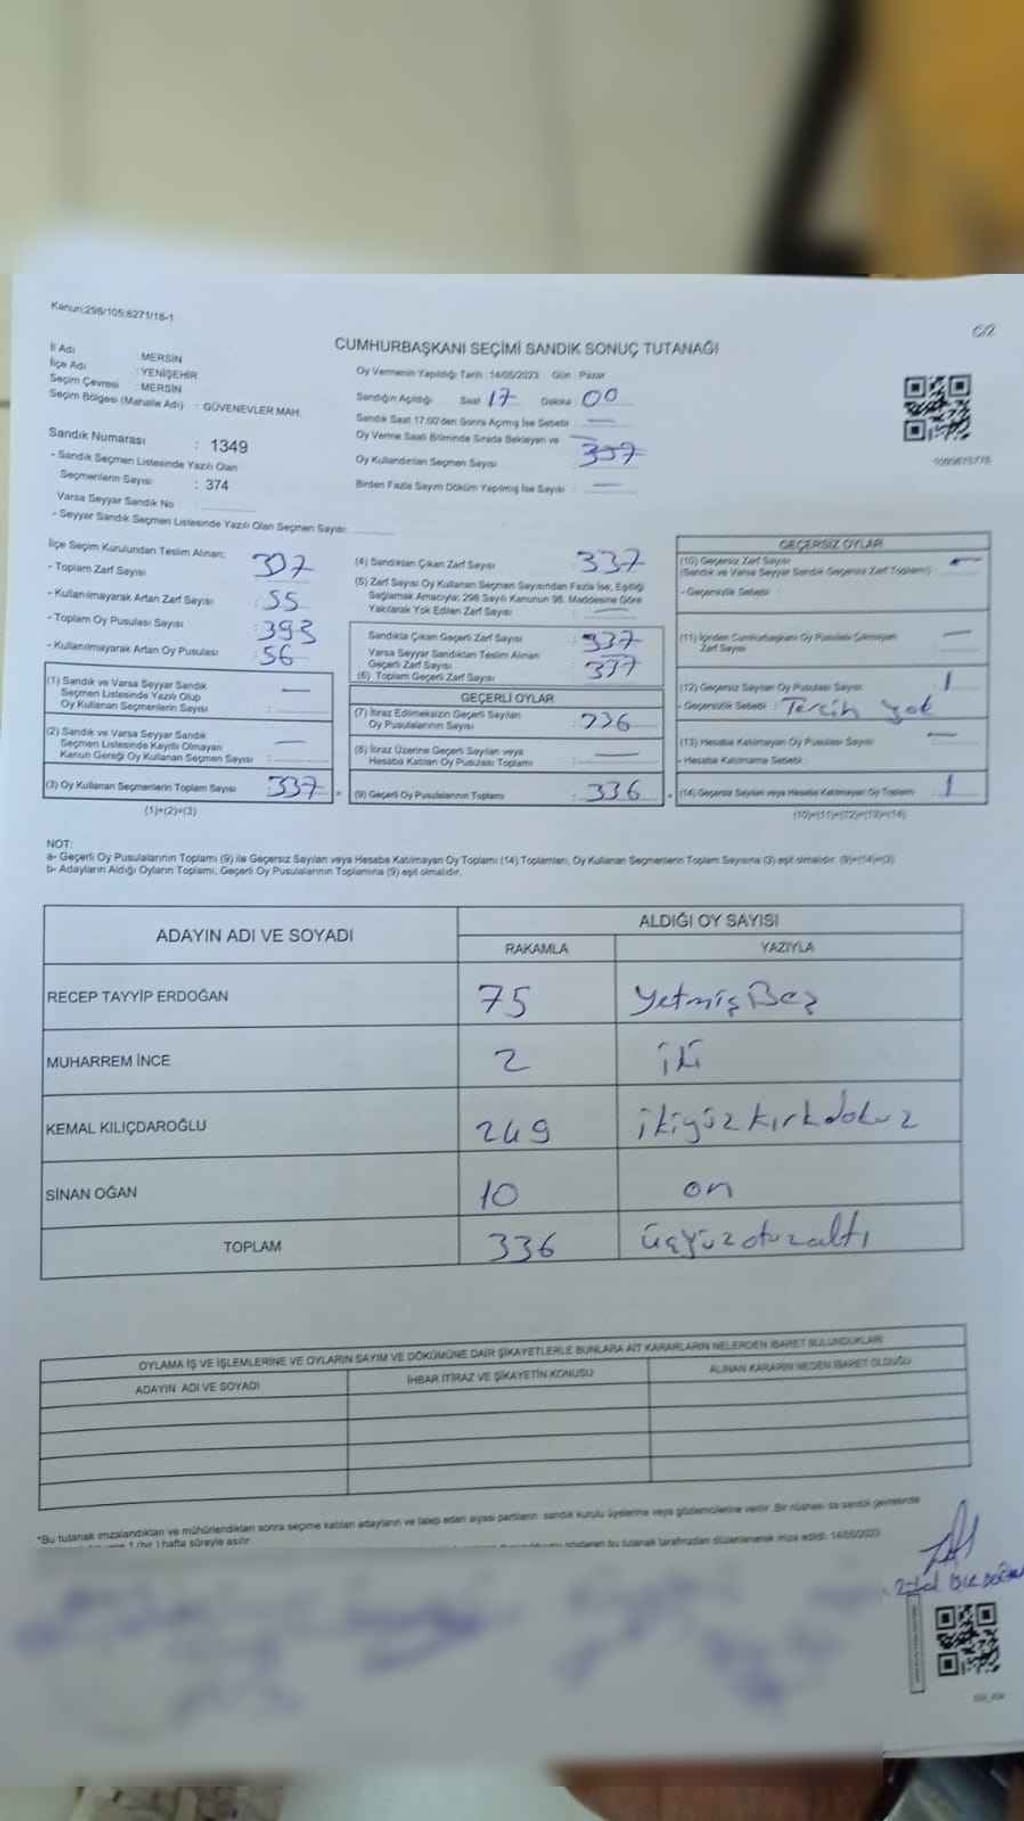 Kanun:298/105;6271/16-1
CUMHURBAŞKANI SEÇİMİ SANDIK SONUÇ TUTANAĞI
İl Adı : MERSİN
İlçe Adı : YENİŞEHİR
Seçim Çevresi : MERSİN
Seçim Bölgesi (Mahalle Adı) : GÜVENEVLER MAH.
Sandık Numarası : 1349
- Sandık Seçmen Listesinde Yazılı Olan
Seçmenlerin Sayısı : 374
Varsa Seyyar Sandık No
- Seyyar Sandık Seçmen Listesinde Yazılı Olan Seçmen Sayısı
Oy Vermenin Yapıldığı Tarih : 14/05/2023 Gün : Pazar
Sandığın Açıldığı Saat 17 Dakika 00
Sandık Saat 17:00'den Sonra Açılmış İse Sebebi —
Oy Verme Saati Bitiminde Sırada Bekleyen ve
Oy Kullandırılan Seçmen Sayısı
Birden Fazla Sayım Döküm Yapılmış İse Sayısı —
İlçe Seçim Kurulundan Teslim Alınan:
- Toplam Zarf Sayısı
- Kullanılmayarak Artan Zarf Sayısı : 55
- Toplam Oy Pusulası Sayısı : 393
- Kullanılmayarak Artan Oy Pusulası : 56
(1) Sandık ve Varsa Seyyar Sandık
Seçmen Listesinde Yazılı Olup
Oy Kullanan Seçmenlerin Sayısı —
(2) Sandık ve Varsa Seyyar Sandık
Seçmen Listesinde Kayıtlı Olmayan
Kanun Gereği Oy Kullanan Seçmen Sayısı —
(3) Oy Kullanan Seçmenlerin Toplam Sayısı : 337
(1)+(2)=(3)
(4) Sandıktan Çıkan Zarf Sayısı : 337
(5) Zarf Sayısı Oy Kullanan Seçmen Sayısından Fazla İse, Eşitliği
Sağlamak Amacıyla; 298 Sayılı Kanunun 98. Maddesine Göre
Yakılarak Yok Edilen Zarf Sayısı —
Sandıkta Çıkan Geçerli Zarf Sayısı : 337
Varsa Seyyar Sandıktan Teslim Alınan
Geçerli Zarf Sayısı —
(6) Toplam Geçerli Zarf Sayısı 337
GEÇERLİ OYLAR
(7) İtiraz Edilmeksizin Geçerli Sayılan
Oy Pusulalarının Sayısı : 336
(8) İtiraz Üzerine Geçerli Sayılan veya
Hesaba Katılan Oy Pusulası Toplamı —
(9) Geçerli Oy Pusulalarının Toplamı : 336
GEÇERSİZ OYLAR
(10) Geçersiz Zarf Sayısı
(Sandık ve Varsa Seyyar Sandık Geçersiz Zarf Toplamı) —
- Geçersizlik Sebebi
(11) İçinden Cumhurbaşkanı Oy Pusulası Çıkmayan
Zarf Sayısı —
(12) Geçersiz Sayılan Oy Pusulası Sayısı 1
- Geçersizlik Sebebi : Tercih yok
(13) Hesaba Katılmayan Oy Pusulası Sayısı —
- Hesaba Katılmama Sebebi
(14) Geçersiz Sayılan veya Hesaba Katılmayan Oy Toplamı 1
(10)+(11)+(12)+(13)=(14)
NOT:
a- Geçerli Oy Pusulalarının Toplamı (9) ile Geçersiz Sayılan veya Hesaba Katılmayan Oy Toplamı (14) Toplamları, Oy Kullanan Seçmenlerin Toplam Sayısına (3) eşit olmalıdır. (9)+(14)=(3)
b- Adayların Aldığı Oyların Toplamı, Geçerli Oy Pusulalarının Toplamına (9) eşit olmalıdır.
ADAYIN ADI VE SOYADI
ALDIĞI OY SAYISI
RAKAMLA YAZIYLA
RECEP TAYYİP ERDOĞAN 75 YetmişBeş
MUHARREM İNCE 2 iki
KEMAL KILIÇDAROĞLU 249 ikiyüzkırkdokuz
SİNAN OĞAN 10 on
TOPLAM 336 üçyüzotuzaltı
OYLAMA İŞ VE İŞLEMLERİNE VE OYLARIN SAYIM VE DÖKÜMÜNE DAİR ŞİKAYETLERLE BUNLARA AİT KARARLARIN NELERDEN İBARET BULUNDUKLARI
ADAYIN ADI VE SOYADI İHBAR İTİRAZ VE ŞİKAYETİN KONUSU ALINAN KARARIN NEDEN İBARET OLDUĞU
*Bu tutanak imzalandıktan ve mühürlendikten sonra seçime katılan adayların ve talep eden siyasi partilerin sandık kurulu üyelerine veya gözlemcilerine verilir. Bir nüshası da sandık çevresinde
hafta süreyle asılır
bu tutanak tarafımızdan düzenlenerek imza edildi. 14/05/2023